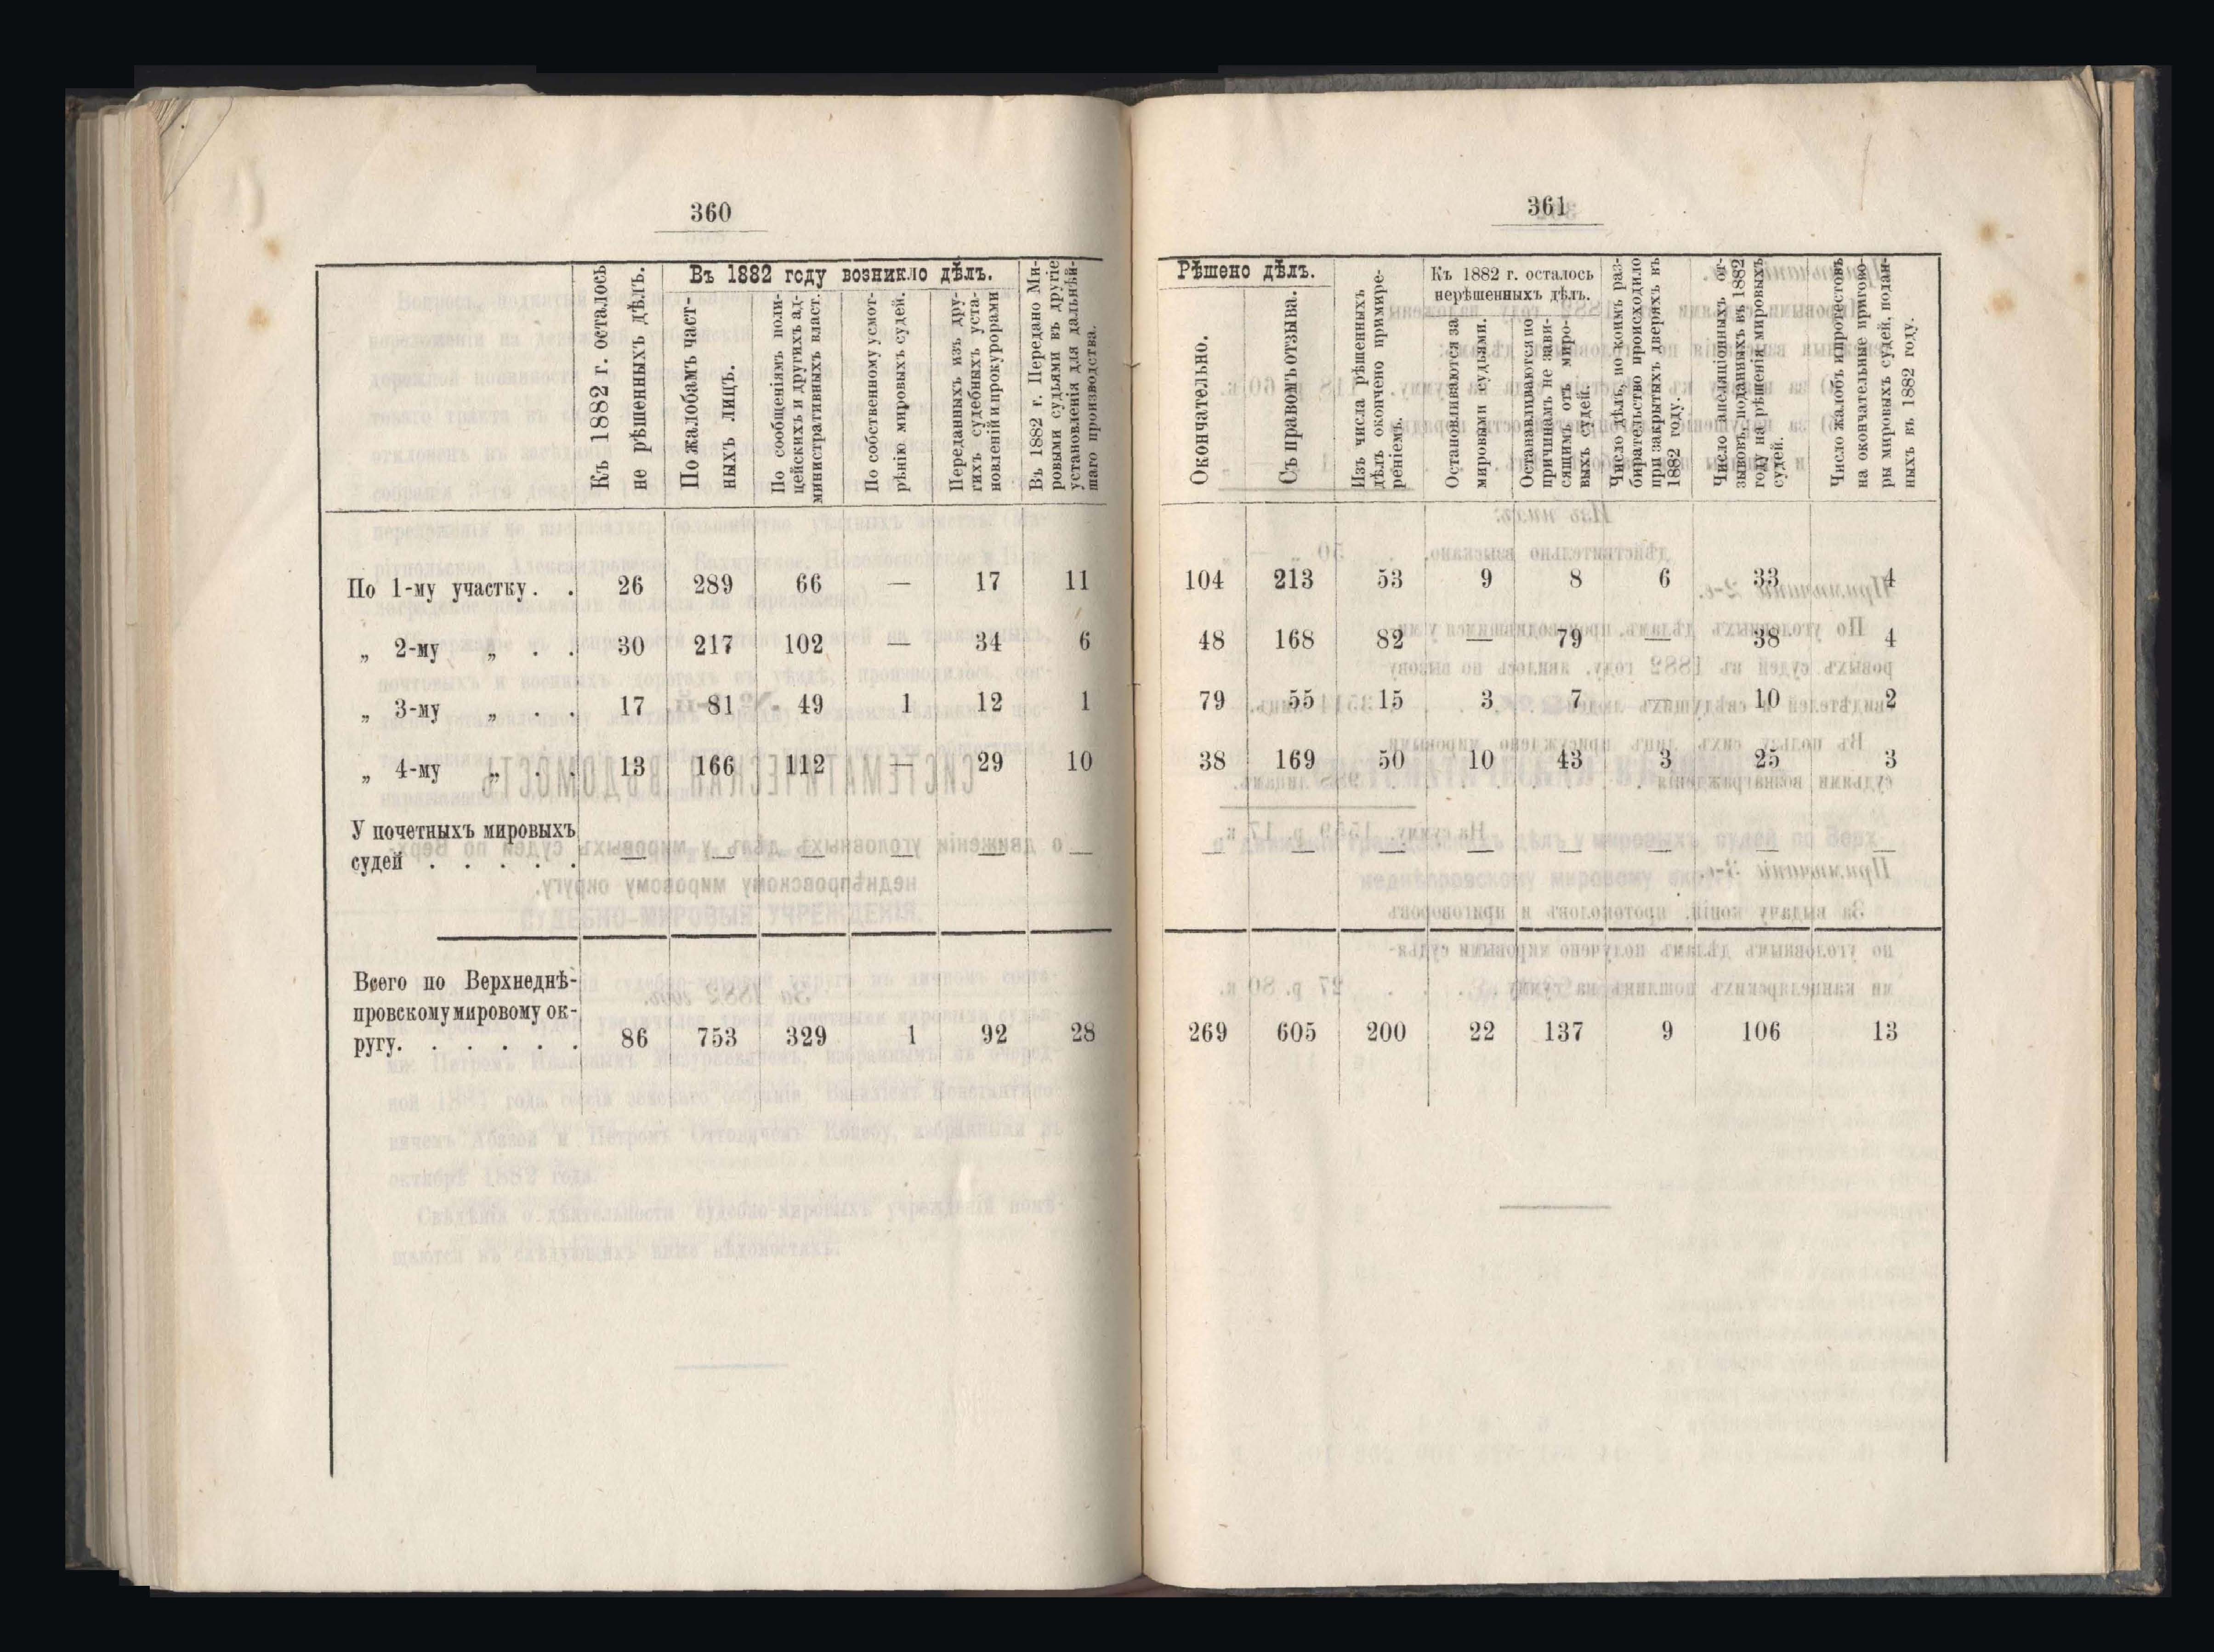 360
Къ 1882 г. осталось
не рѣшенныхъ дѣлъ.
Въ 1882 году возникло дѣлъ.
По жалобамъ част-
ныхъ лицъ.
По сообщеніямъ поли-
цейскихъ и другихъ ад-
министративныхъ власт.
По собственному усмот-
рѣнію мировыхъ судей.
Переданныхъ изъ дру-
гихъ судебныхъ уста-
новленій и прокурорами
Въ 1882 г. Передано Ми-
ровыми судьями въ другіе
установленія для дальнѣй-
шаго производства.
По 1-му участку. . 26 289 66 — 17 11
„ 2-му „ . . 30 217 102 — 34 6
„ 3-му „ . . 17 81 49 1 12 1
„ 4-му „ . . 13 166 112 — 29 10
У почетныхъ мировыхъ
судей . . . . . — — — — — —
Всего по Верхнеднѣ-
провскому мировому ок-
ругу. . . . . . 86 753 329 1 92 28
361
Рѣшено дѣлъ.
Окончательно.
Съ правомъ отзыва.
Изъ числа рѣшенныхъ
дѣлъ окончено примире-
ріемъ.
Къ 1882 г. осталось
нерѣшенныхъ дѣлъ.
Остановливаются за
мировыми судьями.
Останавливаются по
причинамъ не зави-
сящимъ отъ миро-
выхъ судей.
Число дѣлъ, по коимъ раз-
бирательство происходило
при закрытыхъ дверяхъ въ
1882 году.
Число апелляціонныхъ от-
зывовъ, поданныхъ въ 1882
году на рѣшенія мировыхъ
судей.
Число жалобъ и протестовъ
на окончательные пригово-
ры мировыхъ судей, подан-
ныхъ въ 1882 году.
104 213 53 9 8 6 33 4
48 168 82 — 79 — 38 4
79 55 15 3 7 — 10 2
38 169 50 10 43 3 25 3
— — — — — — — —
269 605 200 22 137 9 106 13